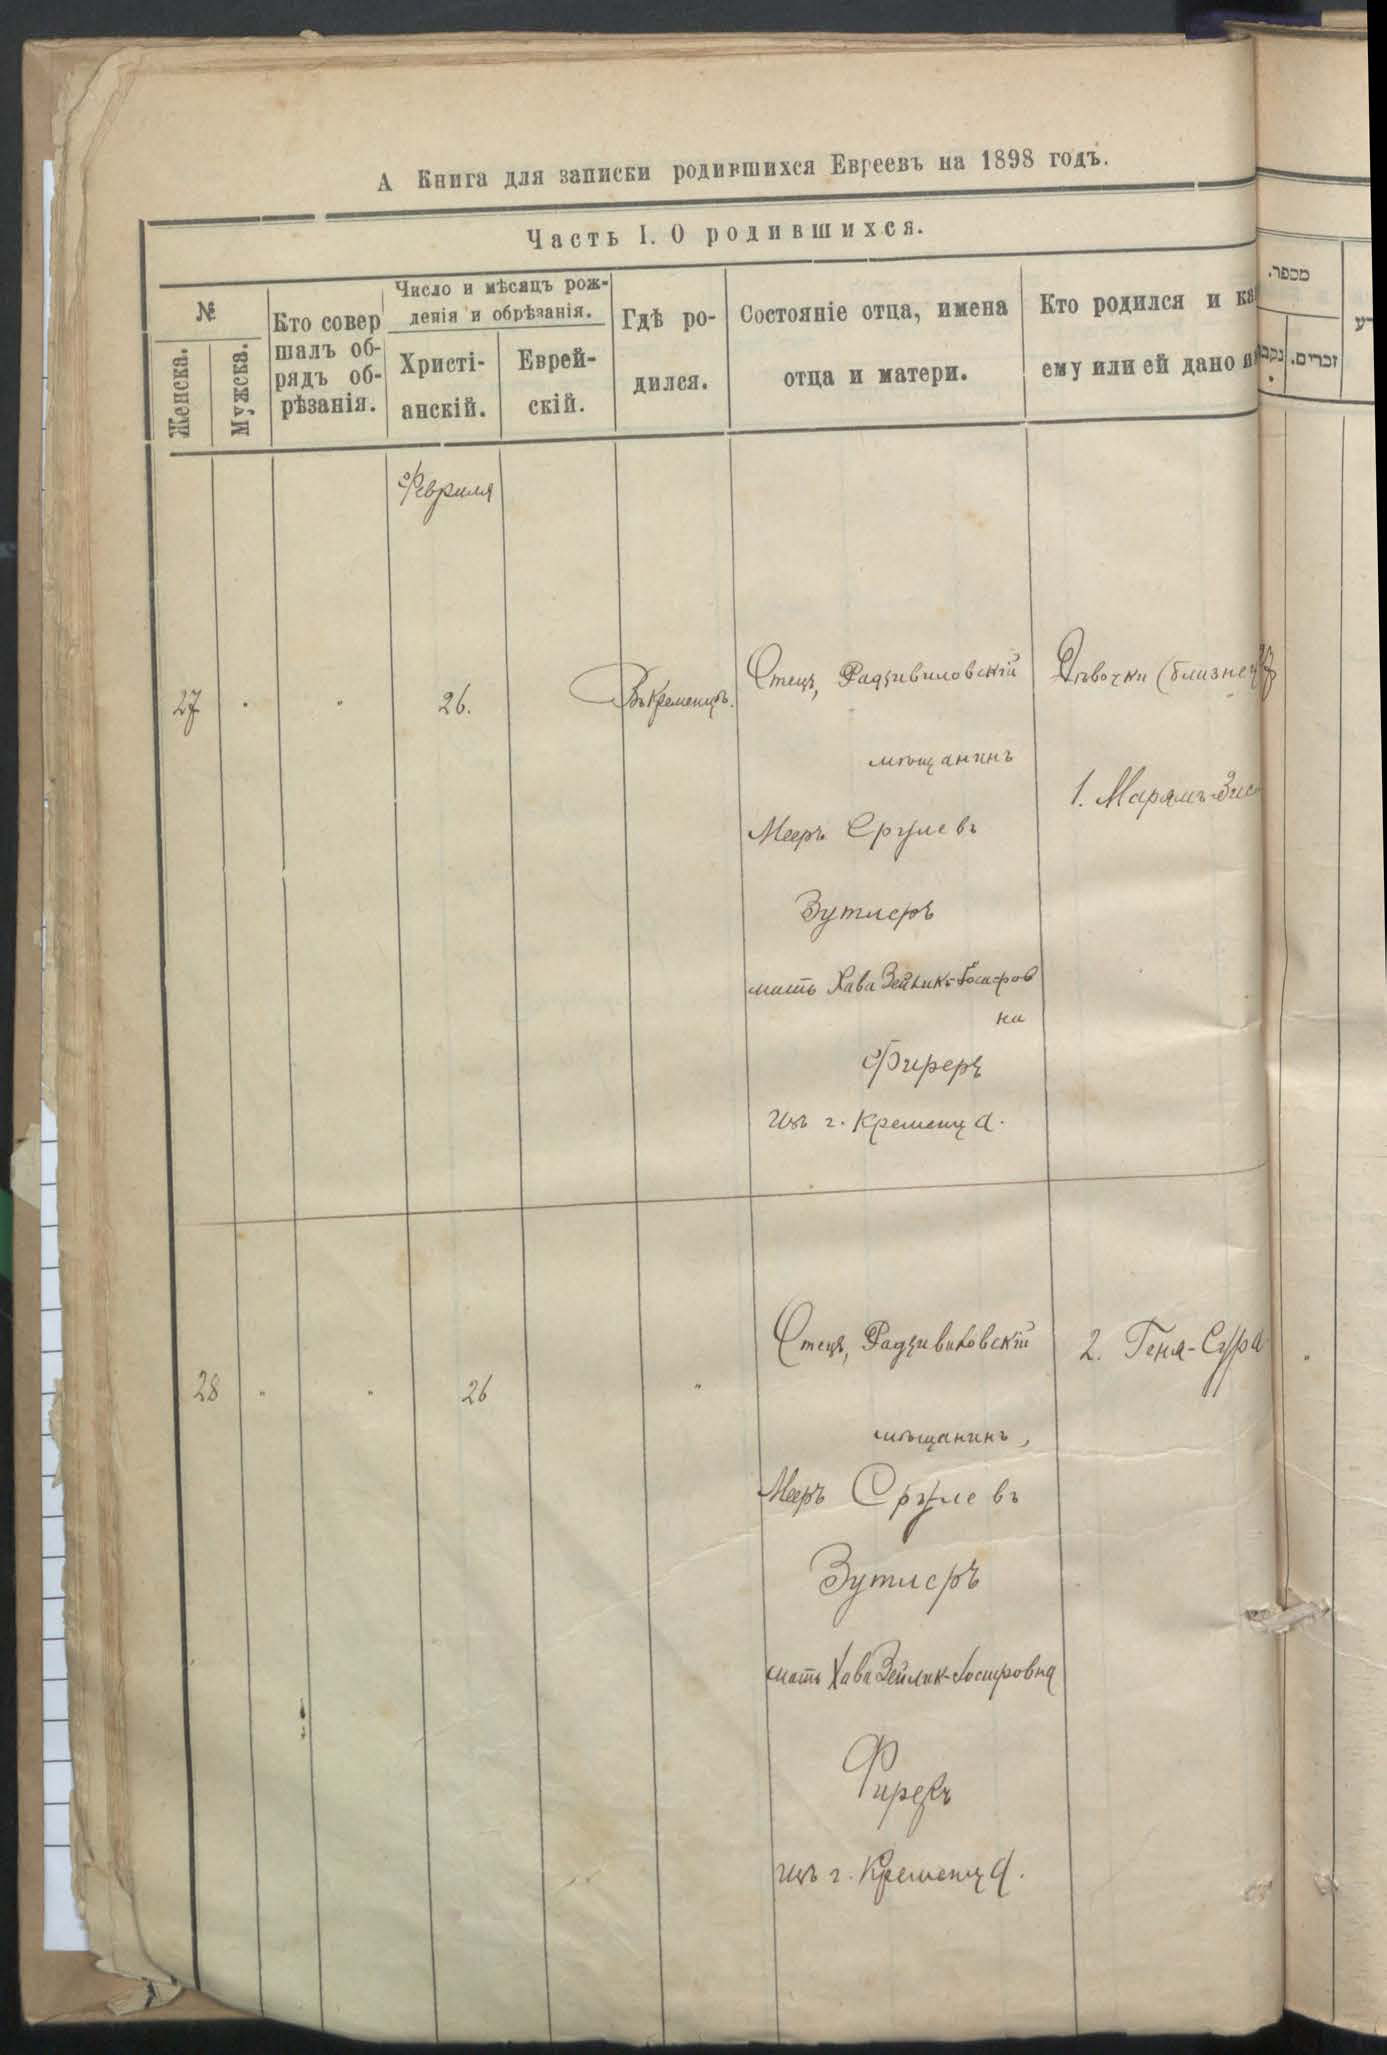 А Книга для записки родившихся Евреевъ на 1898 годъ.
Часть I. О родившихся.
№
Женска.
Мужска.
Кто совер
шалъ об-
рядъ об-
рѣзанія.
Число и мѣсяцъ рож-
денія и обрѣзанія.
Христі-
анскій.
Еврей-
скій.
Гдѣ ро-
дился.
Состояніе отца, имена
отца и матери.
Кто родился и ка
ему или ей дано
מספר.
נקב
זכרים.
Февраля
27 " " 26. Въ Кременцѣ.
Отецъ, Радзивиловскій
мѣщанинъ
Мееръ Срулевъ
Зутлеръ
мать Хава Зейлик-Іосифров
на
Фиреръ
изъ г. Кременца.
Дѣвочки (близнец
1. Марямъ-Зис
28 " " 26 "
Отецъ, Радзивиловскій
мѣщанинъ,
Мееръ Срулевъ
Зутлеръ
мать Хава Зейлик-
Фиреръ
изъ г. Кременца.
2. Геня-Сура